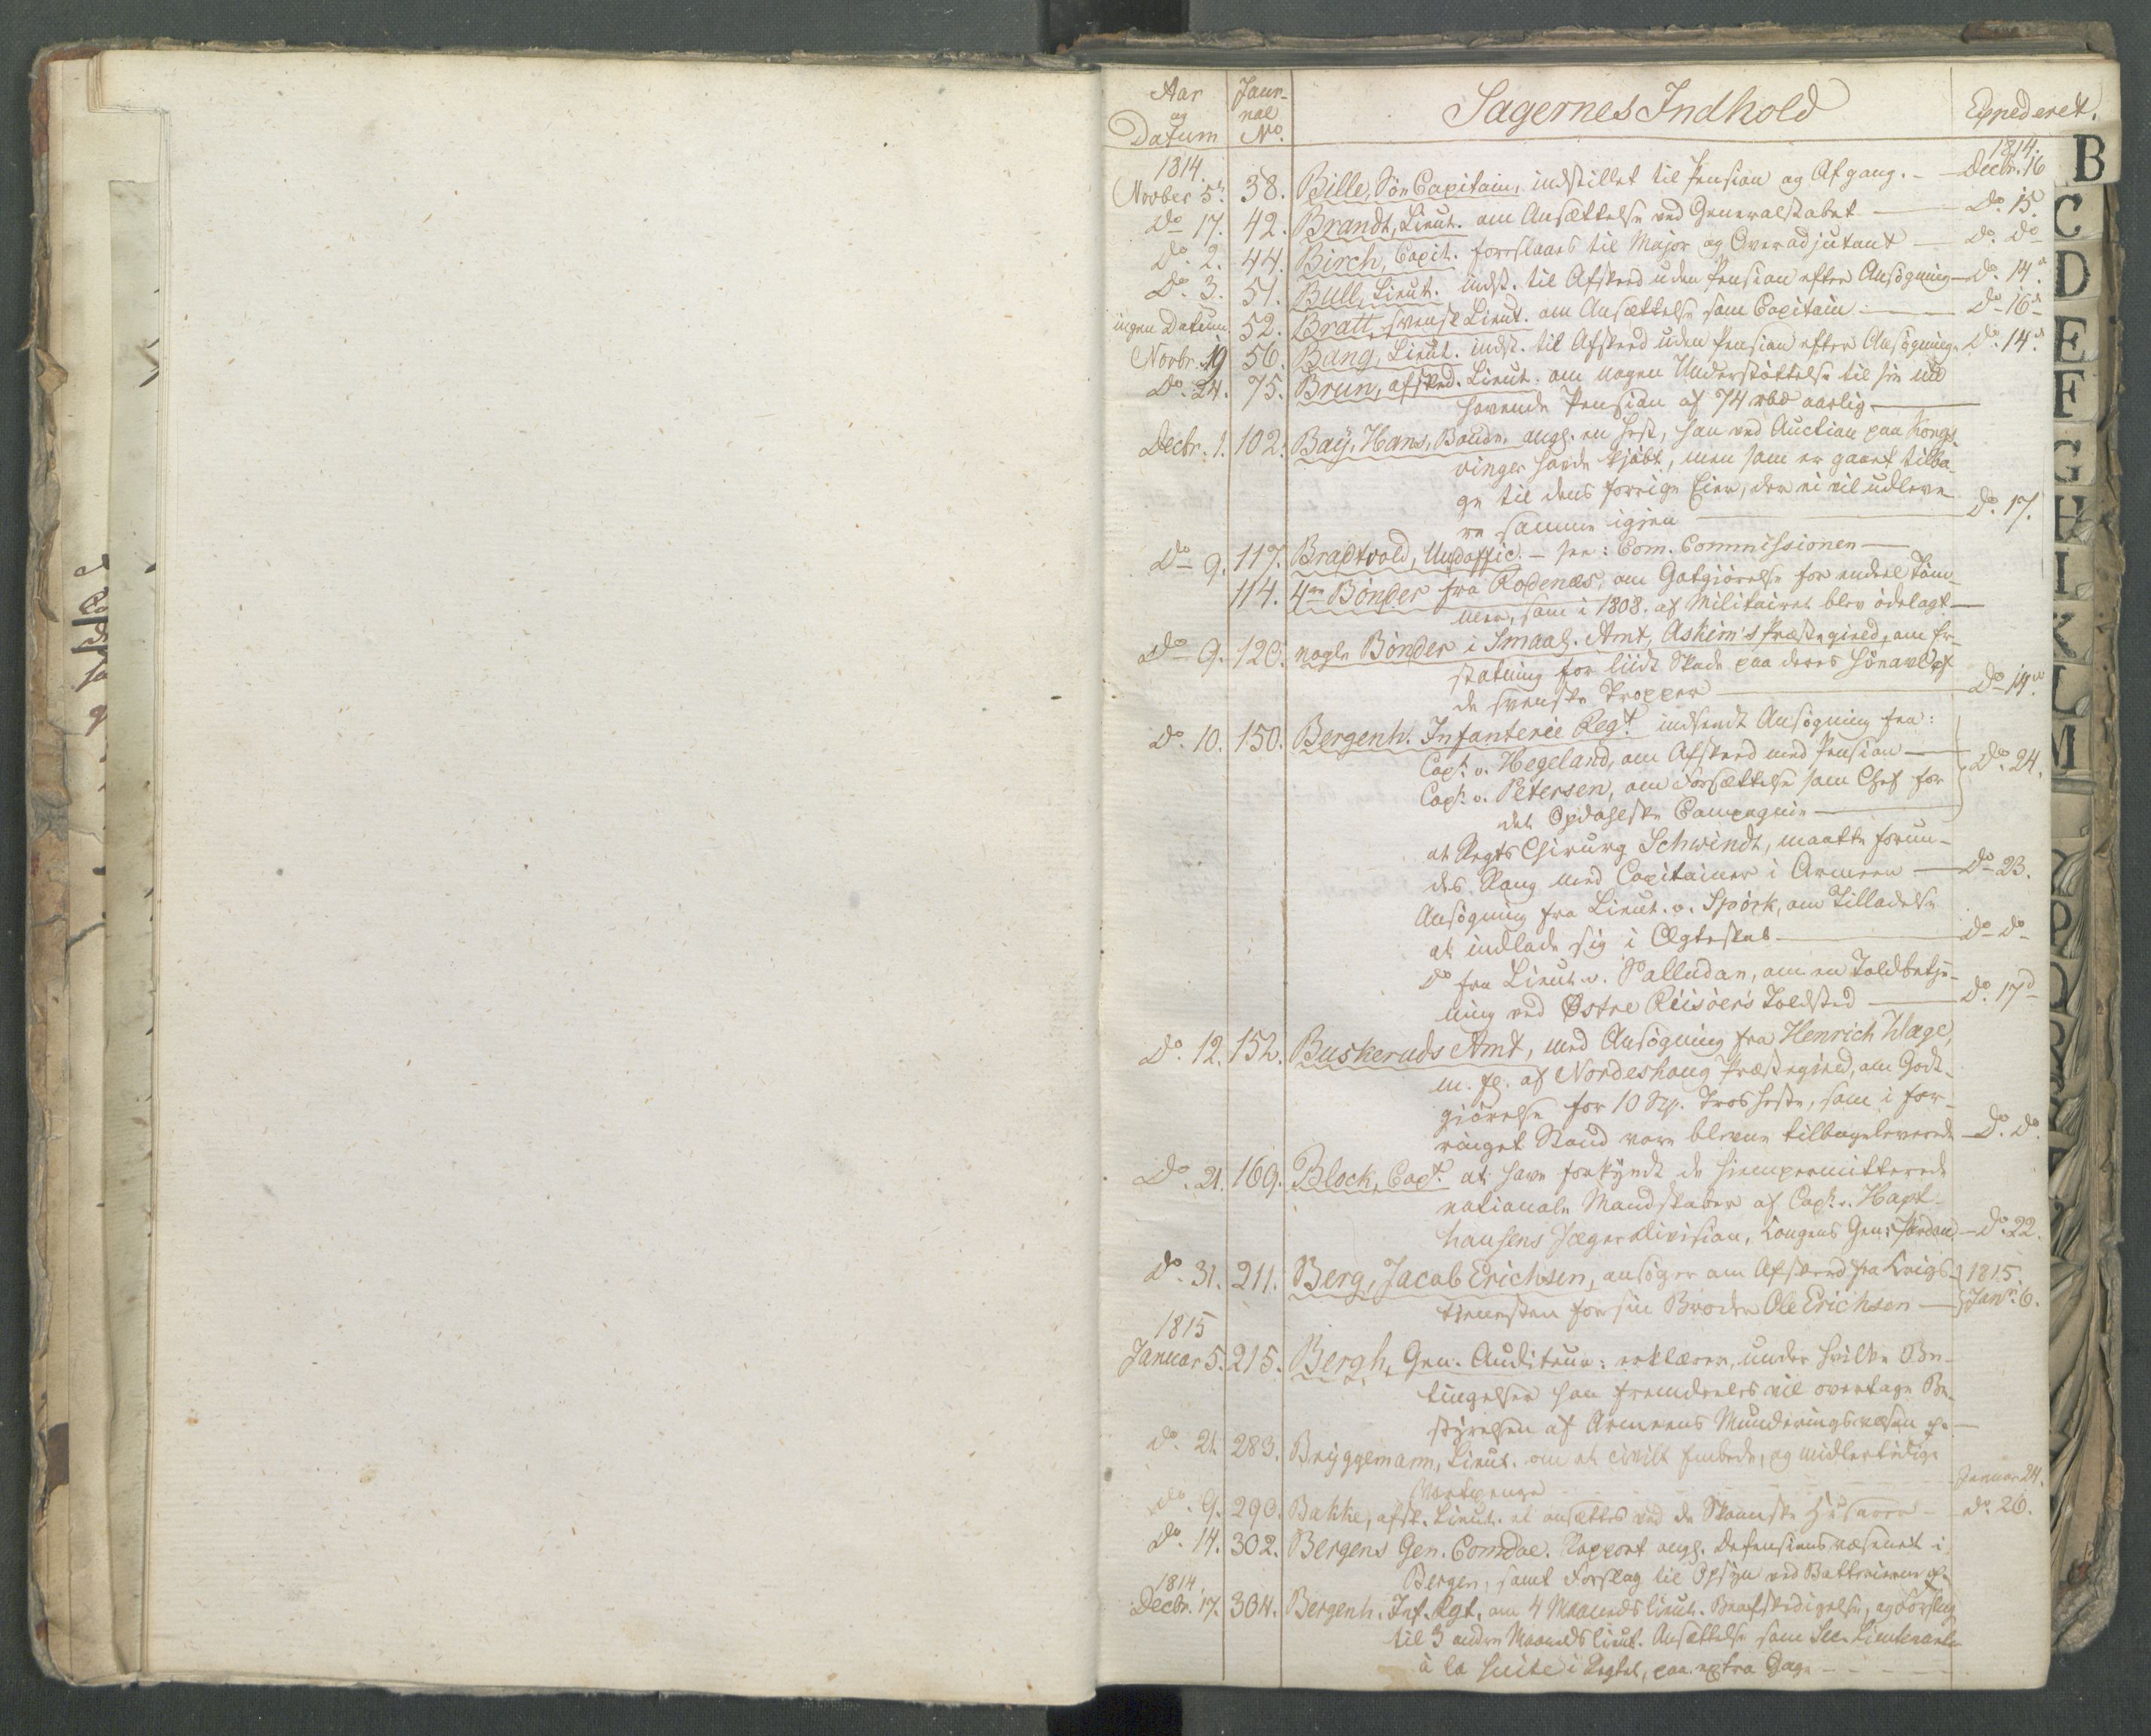 Aar og Datum
Jour-nal No.
Sagernes Indhold
Expederet.
1814.
1814.
Novber 5t. 38. Bille, Sön Capitain, indstillet til Pension og Afgang. — Decbr. 16
Do 17. 42. Brandt, Lieut. om Ansættelse ved Generalstabet — Do. 15.
Do. 2. 44. Birch, Capit. foreslaaes til Major og Overadjutant — Do. Do
Do. 3. 51. Bull, Lieut. indst. til Afskeed uden Pension efter Ansögning — Do. 14.
ingen Datum. 52. Bratt, svensk Lieut. om Ansættelse som Capitain — Do 16
Novbr. 19 56. Bang, Lieut. indst. til Afskeed uden Pension efter Ansögning. Do. 14.
Do. 24. 75. Brun, afsked. Lieut. om nogen Understöttelse til sin ind
havende Pension af 74 rbd aarlig —
Decbr. 1. 102. Baÿ, Hans, Bonde, angl. en Hest, han ved Auction paa Kongs-
vinger havde kjöbt, men som er gaaet tilba-
ge til dens forrige Eier, der ei vil udleve-
re samme igien — Do. 17.
Do 9. 117. Bradtvold, Undoffic. — see: Com. Commissionen —
114. 4re Bönder fra Rödenæs, om Godtgiörelse for endeel Töm-
mer, som i 1808. af Militairet blev ödelagt —
Do 9. 120. nogle Bönder i Smaal. Amt, Askim's Præstegield, om Er-
statning for liidt Skade paa deres Höeavl af
de svenske Tropper — Do 14.
Do. 10. 150. Bergenh. Infanterie Regt. indsendt Ansögning fra:
Capt. v. Hegeland, om Afskeed med Pension —
Capt. v. Petersen, om Forsættelse som Chef for Do. 24.
det Opdahlske Compagnie —
at Regts Chirurg Schwindt, maatte forun-
des Rang med Capitainer i Armeen — Do 23.
Ansögning fra Lieut. v. Spörk, om Tilladelse
at indlade sig i Ægteskab — Do Do
Do fra Lieut. v. Palludan, om en Toldbetje-
ning ved Østre Riisöers Toldsted — Do. 17
Do. 12. 152. Buskeruds Amt, med Ansögning fra Henrich Wage,
m. fl. af Nordeshoug Præstegield, om Godt-
giörelse for 10 Trosheste, som i for-
ringet Stand vare blevne tilbageleverede — Do. Do.
Do. 21. 169. Block, Capt. at have forkyndt de hjempermitterede
nationale Mandskaber af Capt. v. Haxt-
hausens Jægerdivision, Kongens Gen: Pardon — Do. 22.
Do. 31. 211. Berg, Jacob Erichsen, ansöger om Afskeed fra Krigs- 1815.
tienesten for sin Broder Ole Erichsen — Janr. 6.
1815
Januar 5. 215. Bergh, Gen. Auditeur: erklærer, under hvilke Be-
tingelser han fremdeeles vil overtage Be-
styrelsen af Armeens Munderingsvæsen —
Do. 21. 283. Brüggemann, Lieut. om et civilt Embede, og midlertidige
Vartpenge — Januar 24.
Do. 9. 290. Bakke, afsk. Lieut. at ansættes ved de Skaanske Husarer — Do. 26.
Do. 14. 302. Bergens Gen. Comdoe. Rapport angl. Defensionsvæsenet i
Bergen, samt Forslag til Opsyn ved Batterierne
1814.
Decbr. 17. 304. Bergenh. Inf. Rgt, om 4 Maanedslieut. Beafskedigelse, og Forslag
til 3 andre Maanedslieut. Ansættelse som Sec. Lieutenanter
à la Suite i Regtet, paa extra Gage —
B
C
D
E
F
G
H
I
K
L
M
P
Q